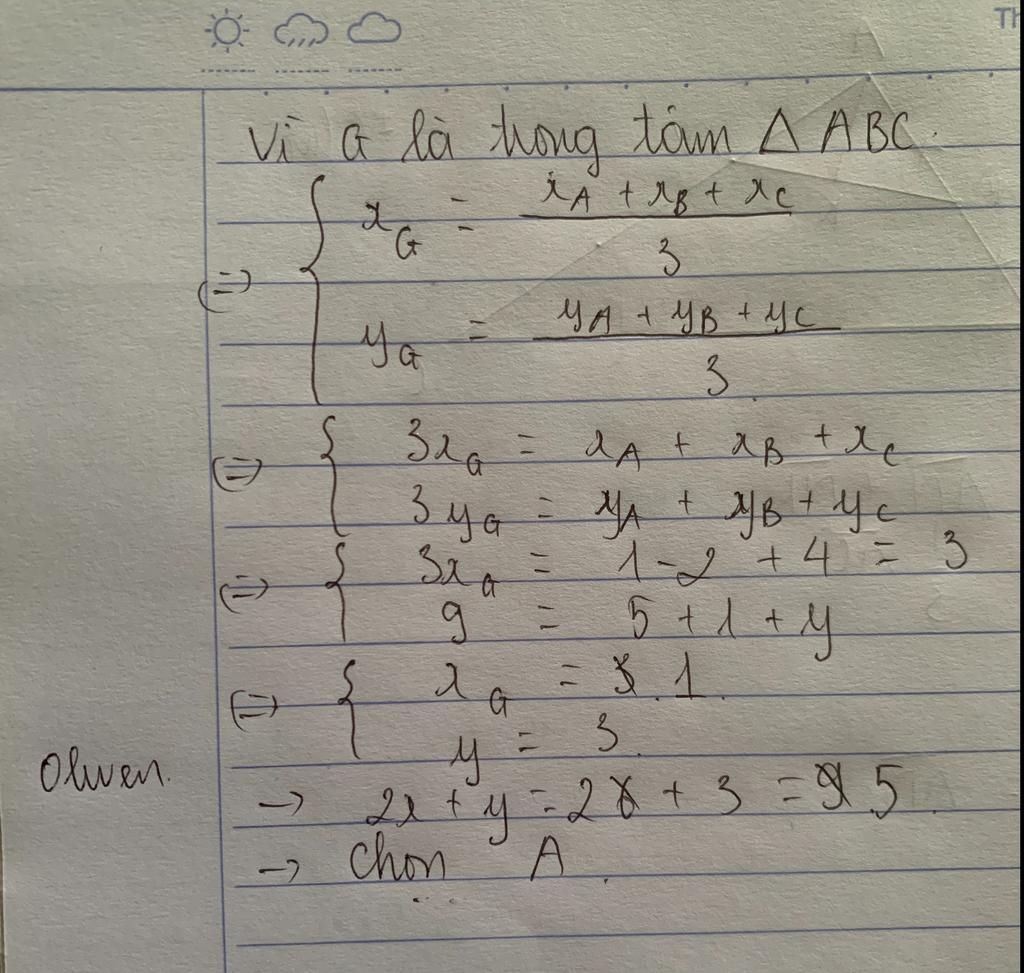 Th
Vì G là trong tâm Δ ABC.
(=) { x_G = (x_A + x_B + x_C) / 3
y_G = (y_A + y_B + y_C) / 3
(=) { 3x_G = x_A + x_B + x_C
3y_G = y_A + y_B + y_C
(=) { 3x_G = 1 - 2 + 4 = 3
9 = 5 + 1 + y
(=) { x_G = 1.
y = 3.
Olwen.
→ 2x + y = 2 + 3 = 5.
→ Chọn A.